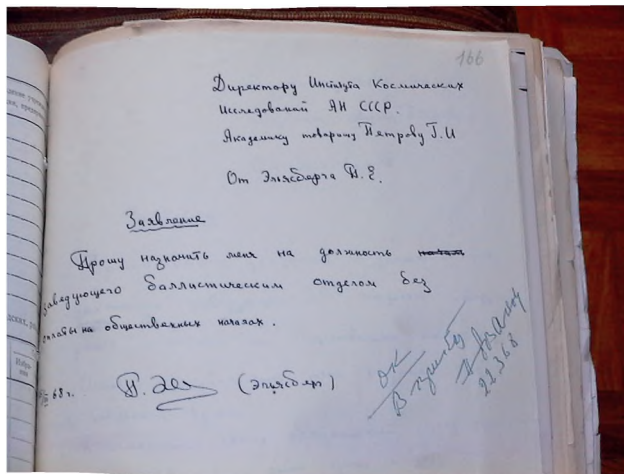 166
Директору Института Космических
Исследований АН СССР.
Академику товарищу Петрову Г.И
От Эльясберга П.Е.
Заявление
Прошу назначить меня на должность
заведующего баллистическим отделом без
оплаты на общественных началах.
68 г. П. (Эльясберг)
ОК
В приказ
22 3 68